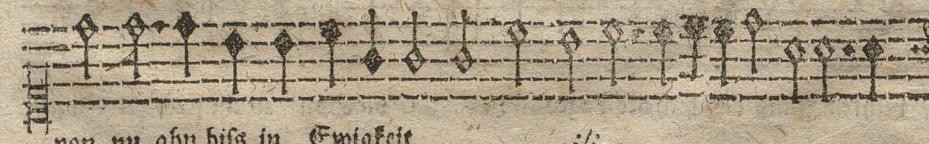 von nu ahn biſs in Ewigkeit :/: